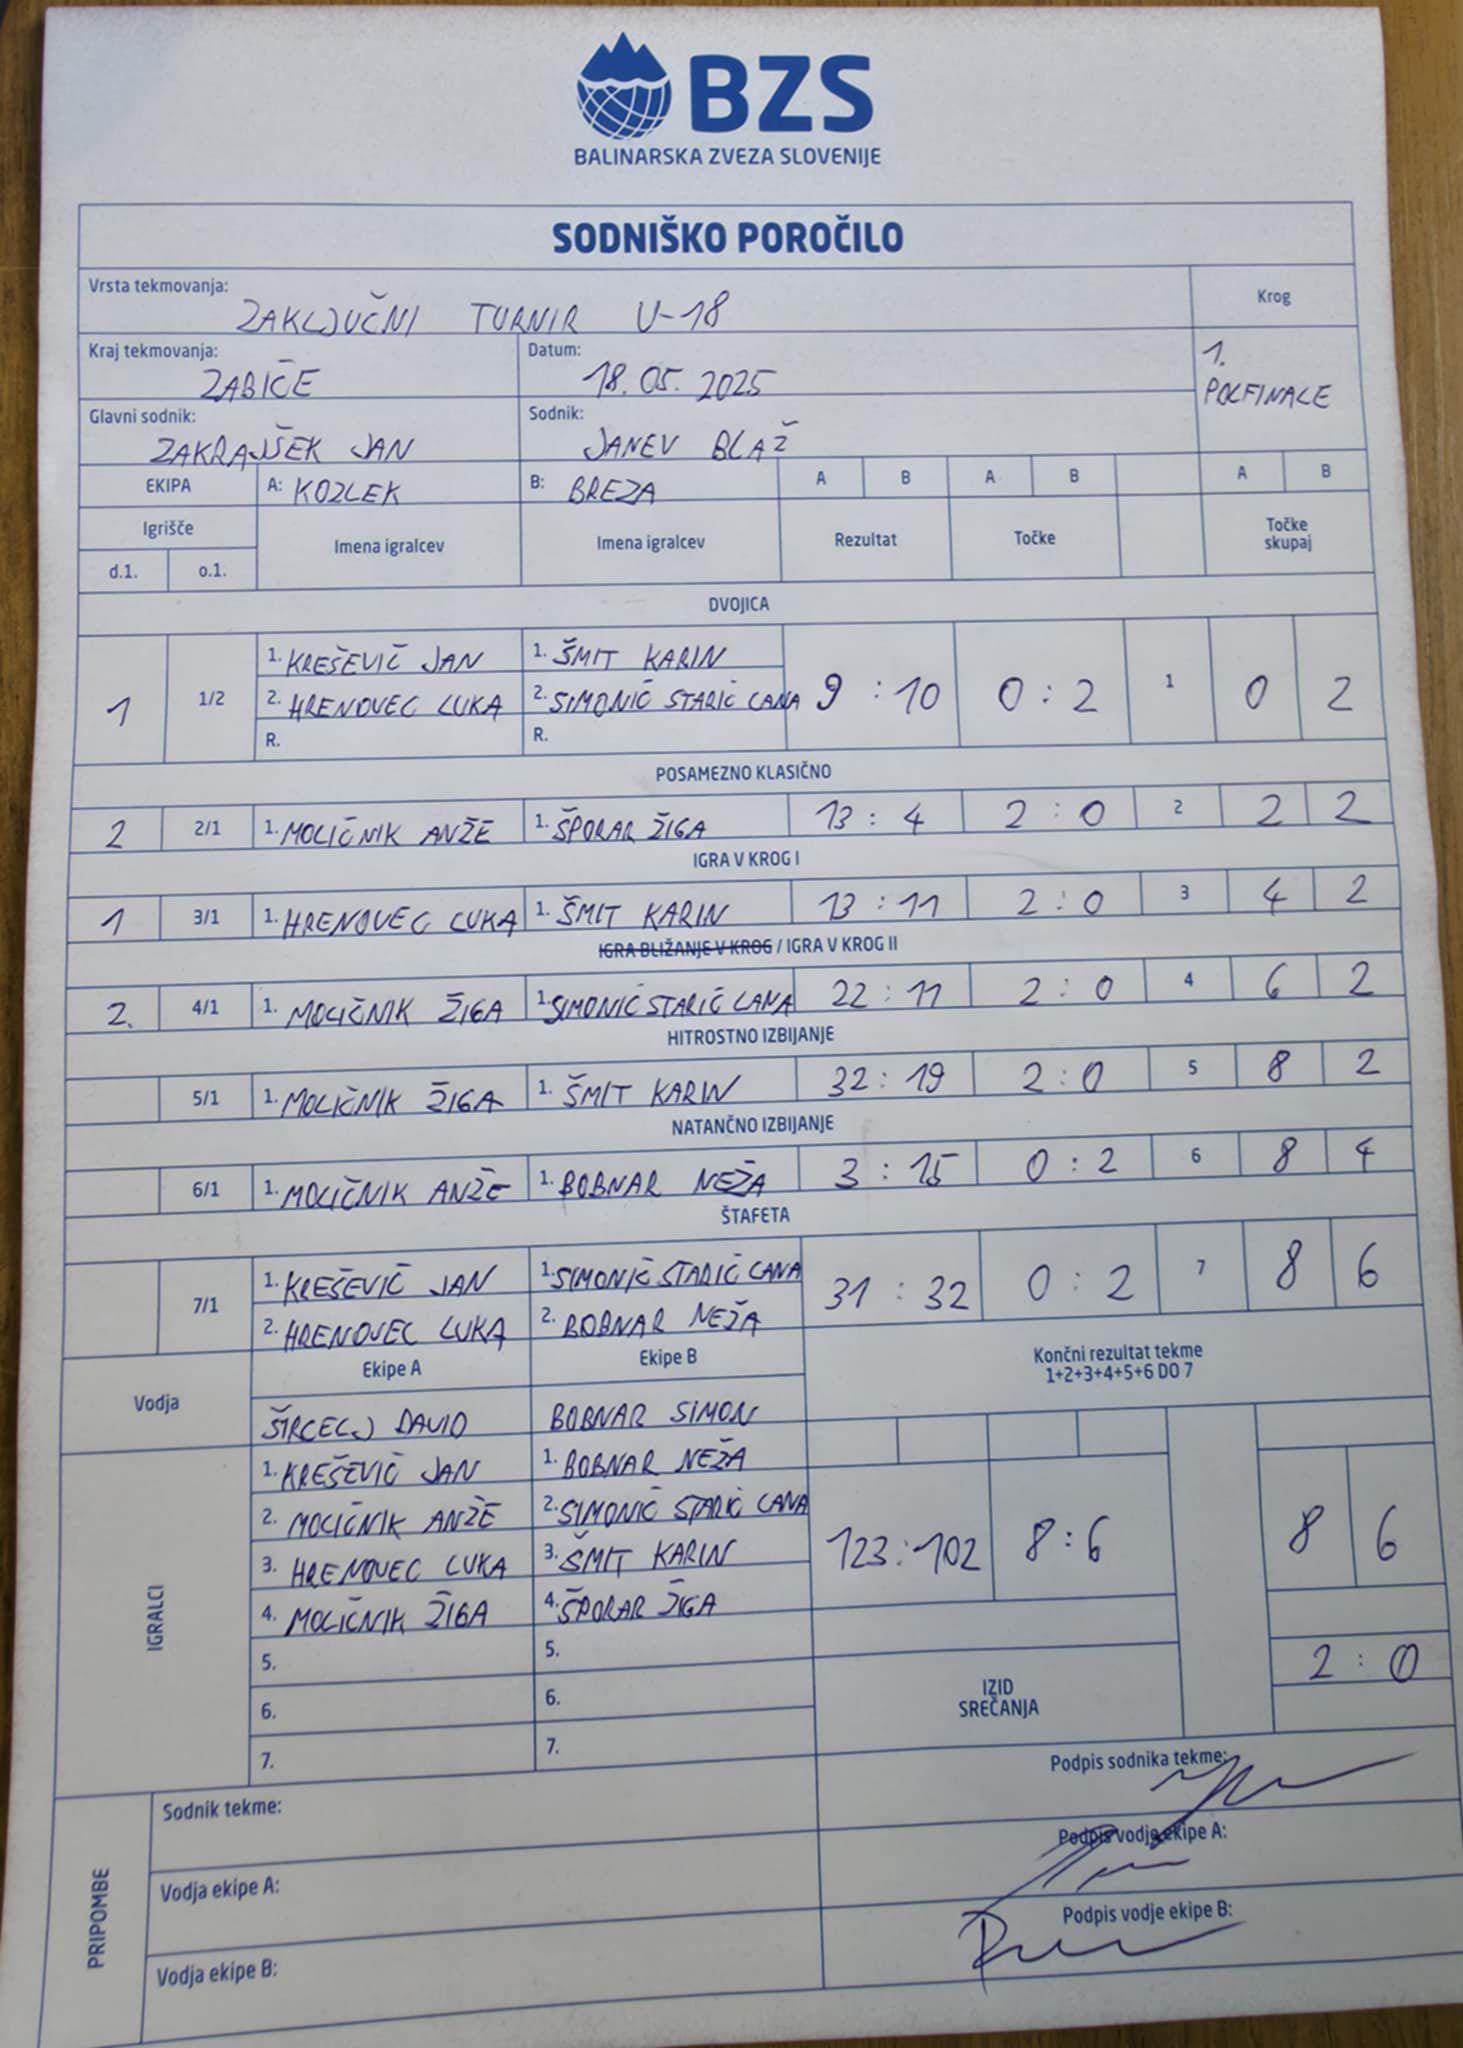 BZS
BALINARSKA ZVEZA SLOVENIJE
SODNIŠKO POROČILO
Vrsta tekmovanja: ZAKLJUČNI TURNIR U-18
Krog
Kraj tekmovanja: ZABIČE Datum: 18.05.2025
1. POLFINALE
Glavni sodnik: ZAKRAJŠEK JAN Sodnik: JANEV BLAŽ
EKIPA A: KOZLEK B: BREZA A B A B A B
Igrišče Imena igralcev Imena igralcev Rezultat Točke Točke skupaj
d.1. o.1.
DVOJICA
1 1/2 1. KREŠEVIČ JAN 1. ŠMIT KARIN 9 : 10 0 : 2 1 0 2
2. HRENOVEC LUKA 2. SIMONIČ STARIČ LANA
R. R.
POSAMEZNO KLASIČNO
2 2/1 1. MOLIČNIK ANŽE 1. ŠPORAR ŽIGA 13 : 4 2 : 0 2 2 2
IGRA V KROG I
1 3/1 1. HRENOVEC LUKA 1. ŠMIT KARIN 13 : 11 2 : 0 3 4 2
IGRA BLIŽANJE V KROG / IGRA V KROG II
2. 4/1 1. MOLIČNIK ŽIGA 1. SIMONIČ STARIČ LANA 22 : 11 2 : 0 4 6 2
HITROSTNO IZBIJANJE
5/1 1. MOLIČNIK ŽIGA 1. ŠMIT KARIN 32 : 19 2 : 0 5 8 2
NATANČNO IZBIJANJE
6/1 1. MOLIČNIK ANŽE 1. BOBNAR NEŽA 3 : 15 0 : 2 6 8 4
ŠTAFETA
7/1 1. KREŠEVIČ JAN 1. SIMONIČ STARIČ LANA 31 : 32 0 : 2 7 8 6
2. HRENOVEC LUKA 2. BOBNAR NEŽA
Vodja Ekipe A Ekipe B Končni rezultat tekme
1+2+3+4+5+6 DO 7
ŠIRCELJ DAVID BOBNAR SIMON
IGRALCI
1. KREŠEVIČ JAN 1. BOBNAR NEŽA
2. MOLIČNIK ANŽE 2. SIMONIČ STARIČ LANA
3. HRENOVEC LUKA 3. ŠMIT KARIN 123 : 102 8 : 6 8 6
4. MOLIČNIK ŽIGA 4. ŠPORAR ŽIGA
5. 5.
6. 6. IZID SREČANJA 2 : 0
7. 7.
PRIPOMBE
Sodnik tekme: Podpis sodnika tekme:
Vodja ekipe A: Podpis vodje ekipe A:
Vodja ekipe B: Podpis vodje ekipe B: